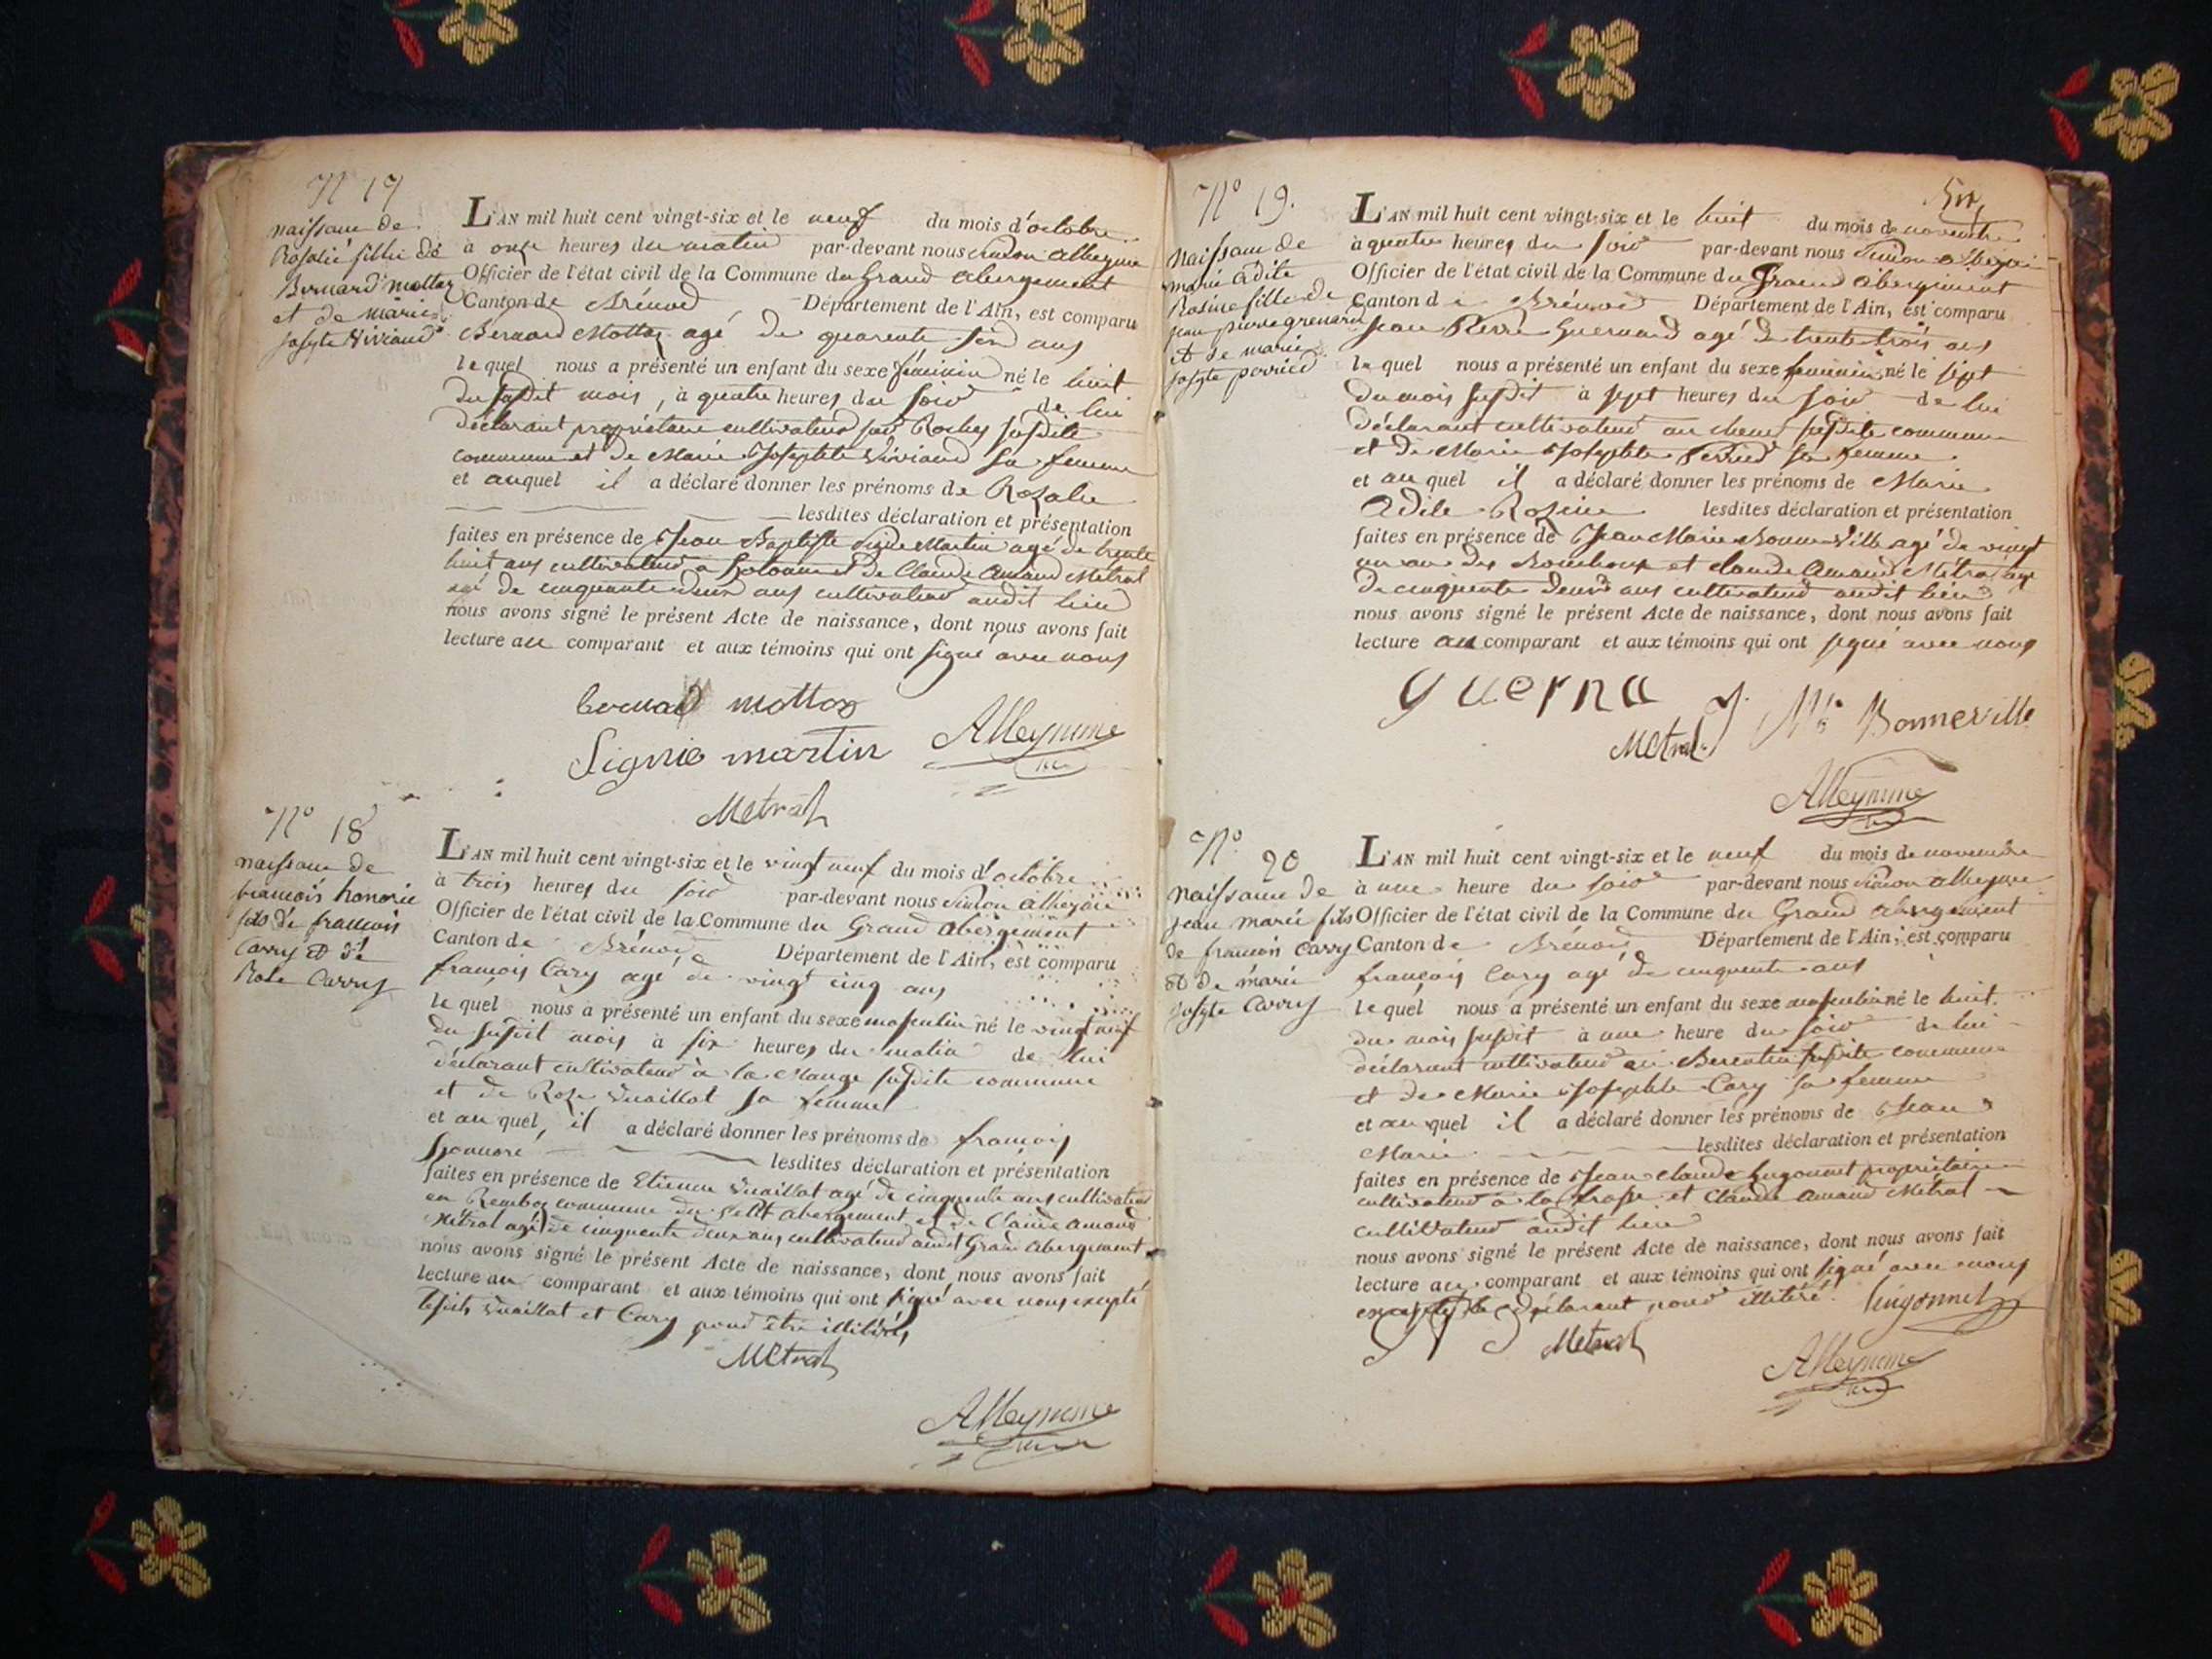 N° 17
naissance de
Rosalie fillie de
Bernard mottaz
et de marie
josepte Viviand
L'AN mil huit cent vingt-six et le neuf du mois d'octobre
à onze heures du matin par-devant nous Simon Alleyme
Officier de l'état civil de la Commune du Grand abergement
Canton de Brénod Département de l'Ain, est comparu
Bernard Mottaz agé de quarente six ans
le quel nous a présenté un enfant du sexe féminin né le huit
du susdit mois, à quatre heures du soir de lui
déclarant propriétaire cultivateur sur Roches susdite
commune et de Marie Josephte Viviand sa femme
et auquel il a déclaré donner les prénoms de Rozalie
lesdites déclaration et présentation
faites en présence de Jean Baptiste Martin agé de trente
huit ans cultivateur a et de Claude Amand Métral
agé de cinquante deux ans cultivateur audit lieu
nous avons signé le présent Acte de naissance, dont nous avons fait
lecture au comparant et aux témoins qui ont signé avec nous
bernard mottaz
Signie martin Alleynme
Metral
N° 18
naissance de
francois honorie
fils de francois
Carry et de
Rose Carry
L'AN mil huit cent vingt-six et le vingt neuf du mois d'octobre
à trois heures du soir par-devant nous Simon Alleyme
Officier de l'état civil de la Commune du Grand abergement
Canton de Brénod Département de l'Ain, est comparu
françois Cary agé de vingt cinq ans
le quel nous a présenté un enfant du sexe masculin né le vingt neuf
du susdit mois à six heures du matin de lui
déclarant cultivateur à la Mange susdite commune
et de Roze Vuaillat sa femme
et au quel, il a déclaré donner les prénoms de françois
honnore lesdites déclaration et présentation
faites en présence de Etienne Vuaillat agé de cinquante ans cultivateur
en commune du Petit abergement et de Claude Amand
Métral agé de cinquante deux ans cultivateur audit Grand abergement
nous avons signé le présent Acte de naissance, dont nous avons fait
lecture au comparant et aux témoins qui ont signé avec nous excepté
lesdits Vuaillat et Cary pour être illitérés
Metral
Alleynme
N° 19.
Naissance de
marie adile
Rosine fille de
jean pierre grenard
et de marie
josepte perried
L'AN mil huit cent vingt-six et le huit du mois de novembre
à quatre heures du soir par-devant nous Simon Alleyme
Officier de l'état civil de la Commune du Grand abergement
Canton de Brénod Département de l'Ain, est comparu
Jean Pierre Guernard agé de trente trois ans
le quel nous a présenté un enfant du sexe feminin né le sept
du mois susdit à sept heures du soir de lui
déclarant cultivateur au susdite commune
et de Marie Josephte Perried sa femme
et au quel il a déclaré donner les prénoms de Marie
Adile Rosine lesdites déclaration et présentation
faites en présence de Jean Marie Bonne Ville agé de vingt
un an des et claude Amand Métral agé
de cinquente deux ans cultivateur audit lieu
nous avons signé le présent Acte de naissance, dont nous avons fait
lecture au comparant et aux témoins qui ont signé avec nous
guerna J. Mie Bonneville
Metral
Alleynme
N° 20
naissance de
jean marie fils
de francois Carry
et de marie
josepte Carry
L'AN mil huit cent vingt-six et le neuf du mois de novembre
à une heure du soir par-devant nous Simon Alleyme
Officier de l'état civil de la Commune du Grand abergement
Canton de Brénod Département de l'Ain, est comparu
françois Cary agé de cinquente ans
le quel nous a présenté un enfant du sexe masculin né le huit
du mois susdit à une heure du soir de lui
déclarant cultivateur en susdite commune
et de Marie Josephte Cary sa femme
et au quel il a déclaré donner les prénoms de Jean
Marie lesdites déclaration et présentation
faites en présence de Jean claude Lingonnet propriétaire
cultivateur à la et Claude Amand Métral
cultivateur audit lieu
nous avons signé le présent Acte de naissance, dont nous avons fait
lecture au comparant et aux témoins qui ont signé avec nous
excepté le déclarant pour illitéré. Lingonnet
Metral
Alleynme